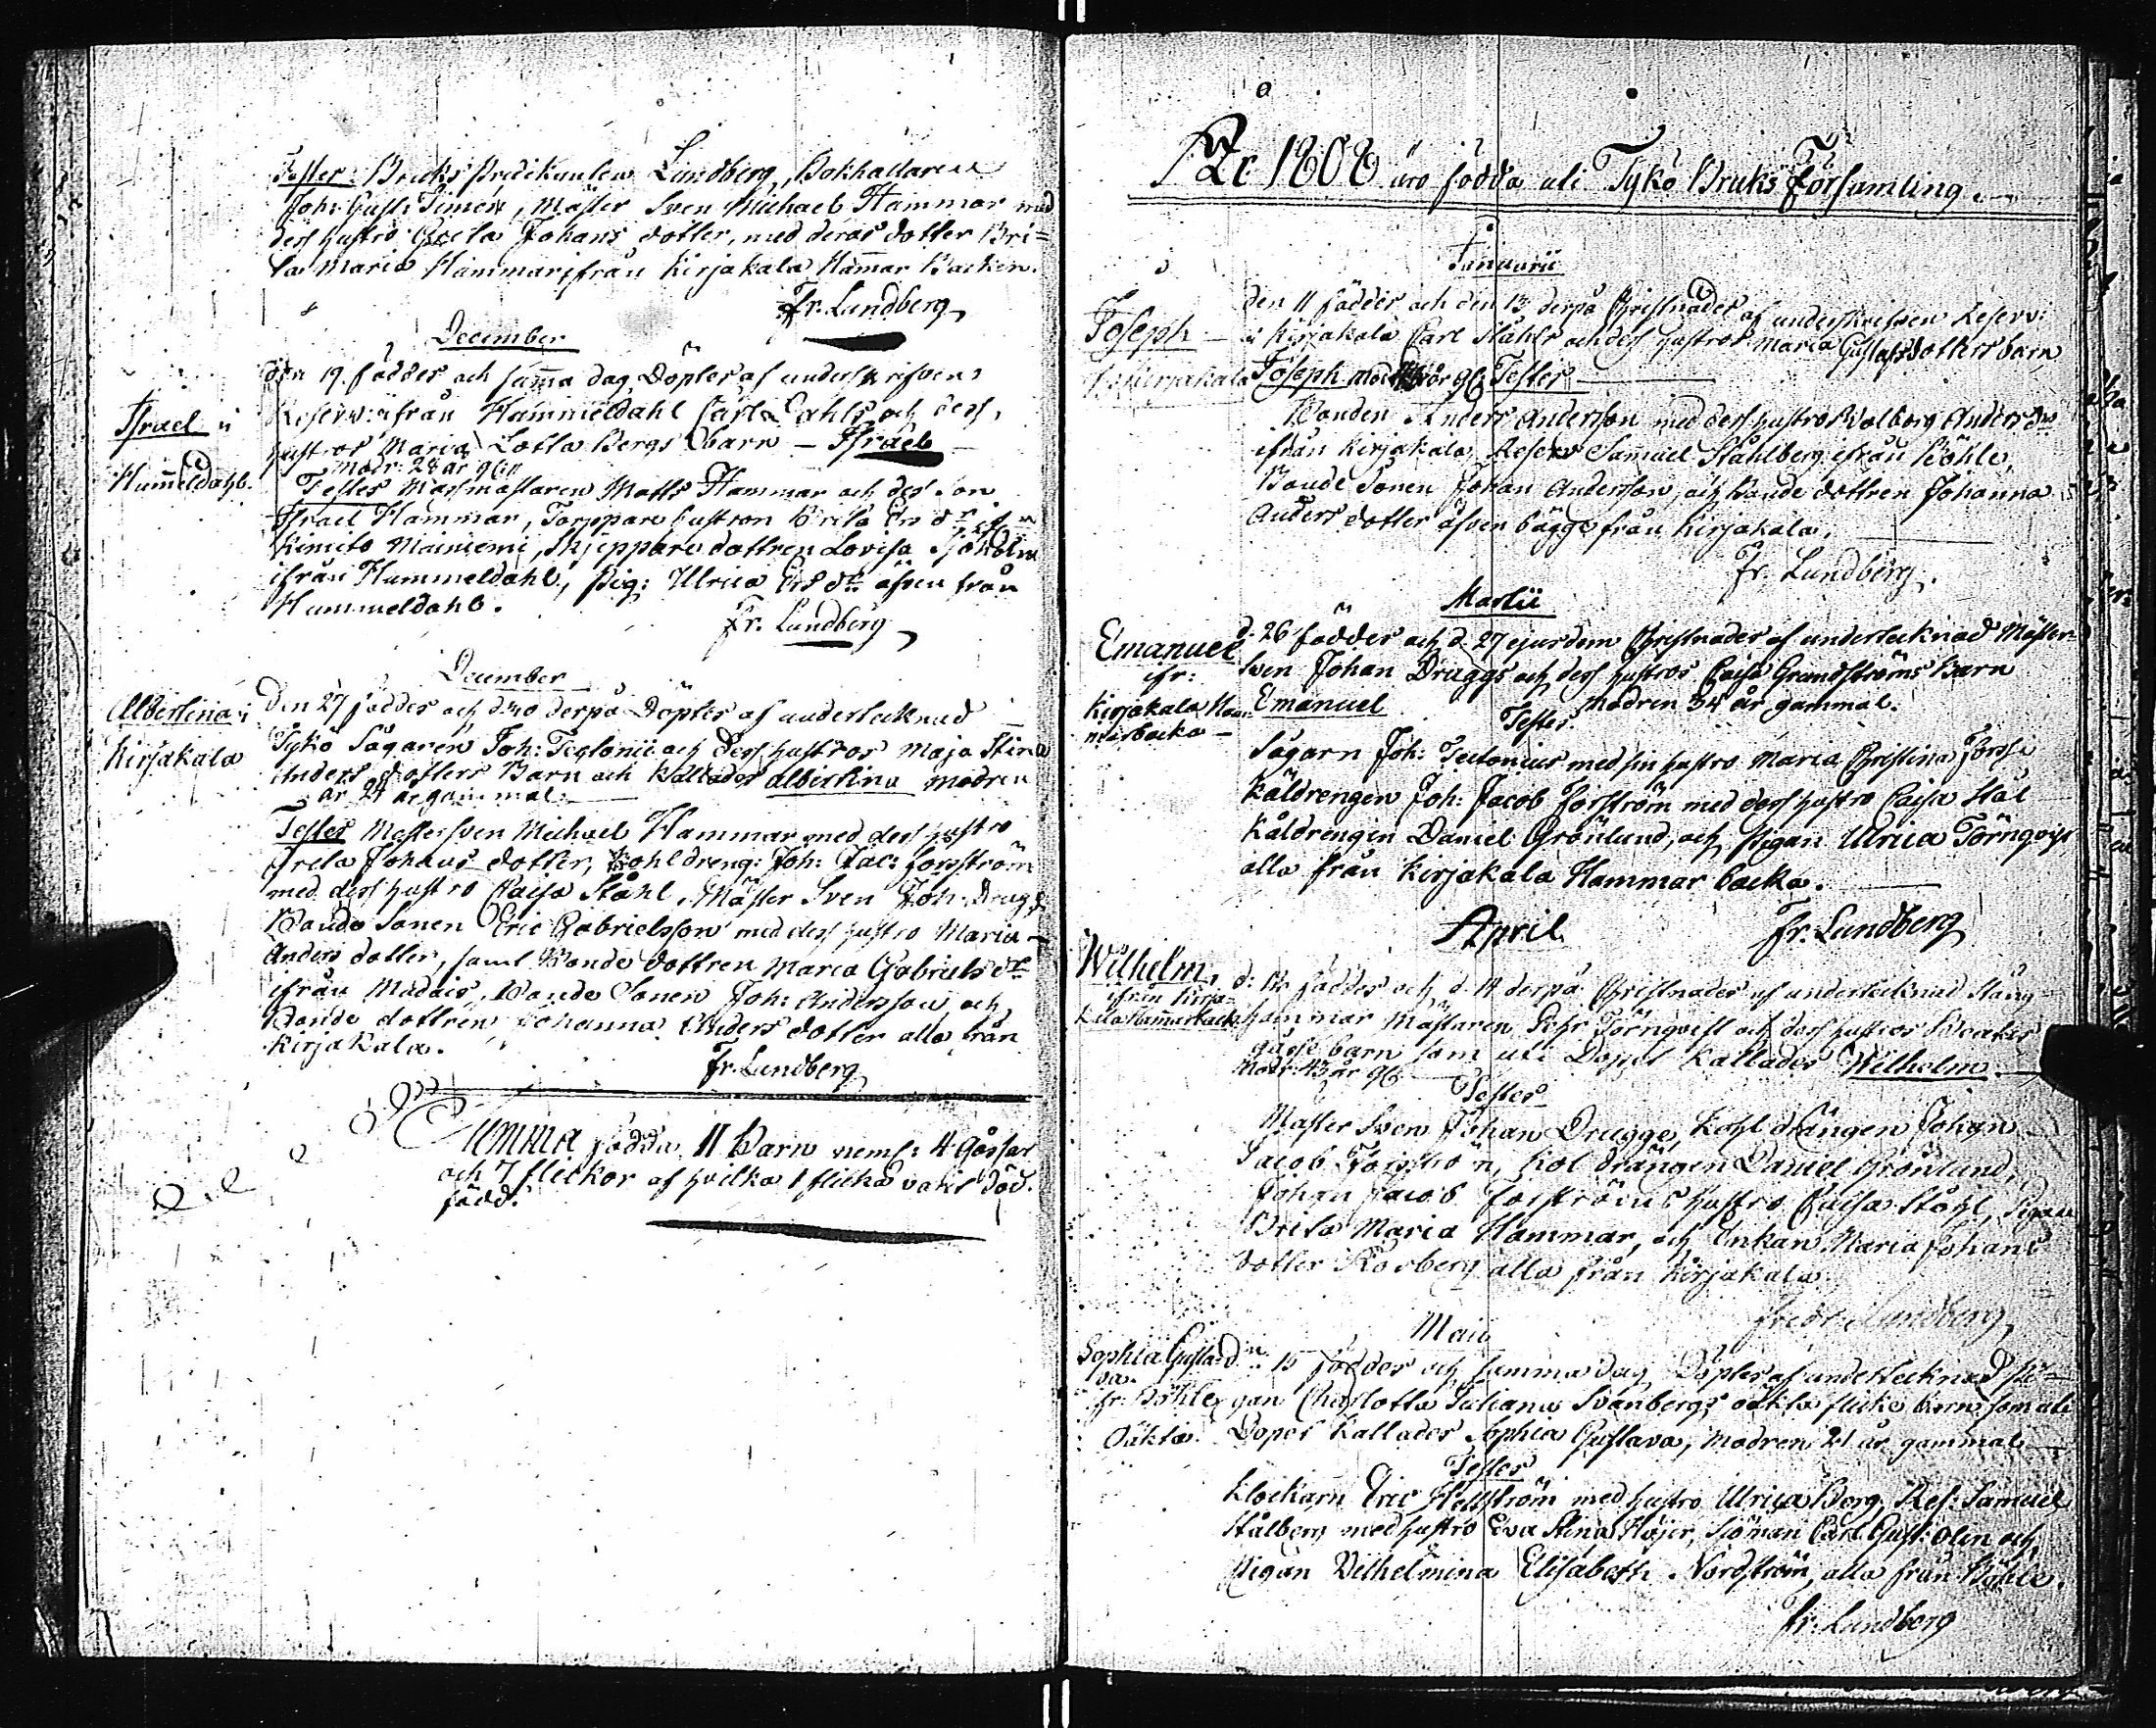 Testes: Bruks Predikanten Lundberg, Bokhållaren
Joh: Gust: Timén, Mäster Sven Michael Hammar med
dess hustro Greta Johans dotter, med deras dotter Bri=
ta Maria Hammar ifrån Kirjakala Ham̄ar Backen.
Fr. Lundberg
December
den 19. föddes och sam̄a dag Döptes af underskrifven
Israel i
Reserv: ifrån Hammeldahl Carl Dahls och dess
hustros Maria Lotta Bergs barn – Israel
modr: 28 år gl
Hum̄eldahl.
Testes Masmästaren Matts Hammar och des Son
Israel Hammar, Torppare hustron Brita
Kimito Mainiemi, Skjeppare dottren Lovisa Sjöholm
ifrån Hummeldahl, Pig: Ulrica äfven från
Hummeldahl.
Fr. Lundberg
December
Albertina i
Den 27 föddes och d 30 derpå Döptes af undertecknad
Kirjakala
Tykö Sågaren Joh: Tectonii och dess hustros Maja Stina
Anders dotters Barn och kallades Albertina modren
är 24 år gammal.
Testes Mästersven Michael Hammar med dess hustro
Greta Johans dotter, Kohldreng: Joh: Jac: Forsström
med dess hustro Caisa Ståhl, Mäster Sven Joh: Drugg
Bonde Sonen Eric Gabrielsson med dess hustro Maria
Anders dotter, samt Bonde dottren Maria Gabriels dr
ifrån Madais, Bonde Sonen Joh: Andersson och
Bonde dottren Johanna Anders dotter alla från
Kirjakala.
Fr. Lundberg
Summa födda 11 Barn neml: 4 Gossar
och 7 flickor af hvilka 1 flicka varit död
född.
1808 äro födda uti Tykö Bruks Församling.
Januarii
den 11 föddes och den 13 derpå Christnades af underskrifven Reserv:
Joseph
i Kirjakala Carl Ståhls och dess hustros Maria Gustafsdotters barn
i Kirjakala
Joseph år gl: Testes
Bonden Anders Andersson med dess hustro Valborg Anders dr
ifrån Kirjakala, Reserv Samuel Ståhlberg ifrån Böhle,
Bonde Sonen Johan Andersson, och Bonde dottren Johanna
Anders dotter äfven bägge från Kirjakala.
Fr. Lundberg.
Martii
Emanuel
d. 26 föddes och d. 27 ejusdem Christnades af undertecknad Mäster
ifr:
Sven Johan Druggs och dess hustros Caisa Grandströms Barn
Kirjakala Ham
Emanuel
Modren 34 år gammal.
marbacka
Testes
Sågarn Joh: Tectonius med sin hustro Maria Christina Forss
Kåldrengen Joh: Jacob Forsström med dess hustro Caisa Stål
Kåldrengen Daniel Grönlund, och Pigan Ulrica Törnqvist
alla från Kirjakala Hammar backa.
Fr. Lundberg
April
Wilhelm
föddes och d. 14 derpå Christnades af undertecknad Stång
ifrån Kirja-
kala Ham̄arbacka
hammar Mästaren Pehr Törnqvist och dess hustros
gosse barn som uti Dopet kallades Wilhelm
Modr: 43 år gl:
Testes
Mäster Sven Johan Drugge, Kohl drängen Johan
Jacob Forsström, Kol drängen Daniel Grönlund,
Johan Jacob Forsströms hustro Caisa Ståhl, Pigan
Brita Maria Hammar, och Enkan Maria Johans
dotter Rosberg alla från Kirjakala
Fredr: Lundberg
Maii
Sophia Gusta
va.
d. 15 föddes och samma dag Döptes af undertecknad Pi-
fr: Böhle
gan Charlotta Juliana Svanbergs oäkta flicke barn som uti
Oäkta.
Dopet kallades Sophia Gustava, modren 21 år gammal
Testes
Klockarn Eric Hellström med hustro Ulrica Borg, Res: Samuel
Stålberg med hustro Eva Stina Höjer, Sjöman Carl Gust: Olin och
Pigan Vilhelmina Elisabeth Nordström, alla från Böhle.
Fr. Lundberg